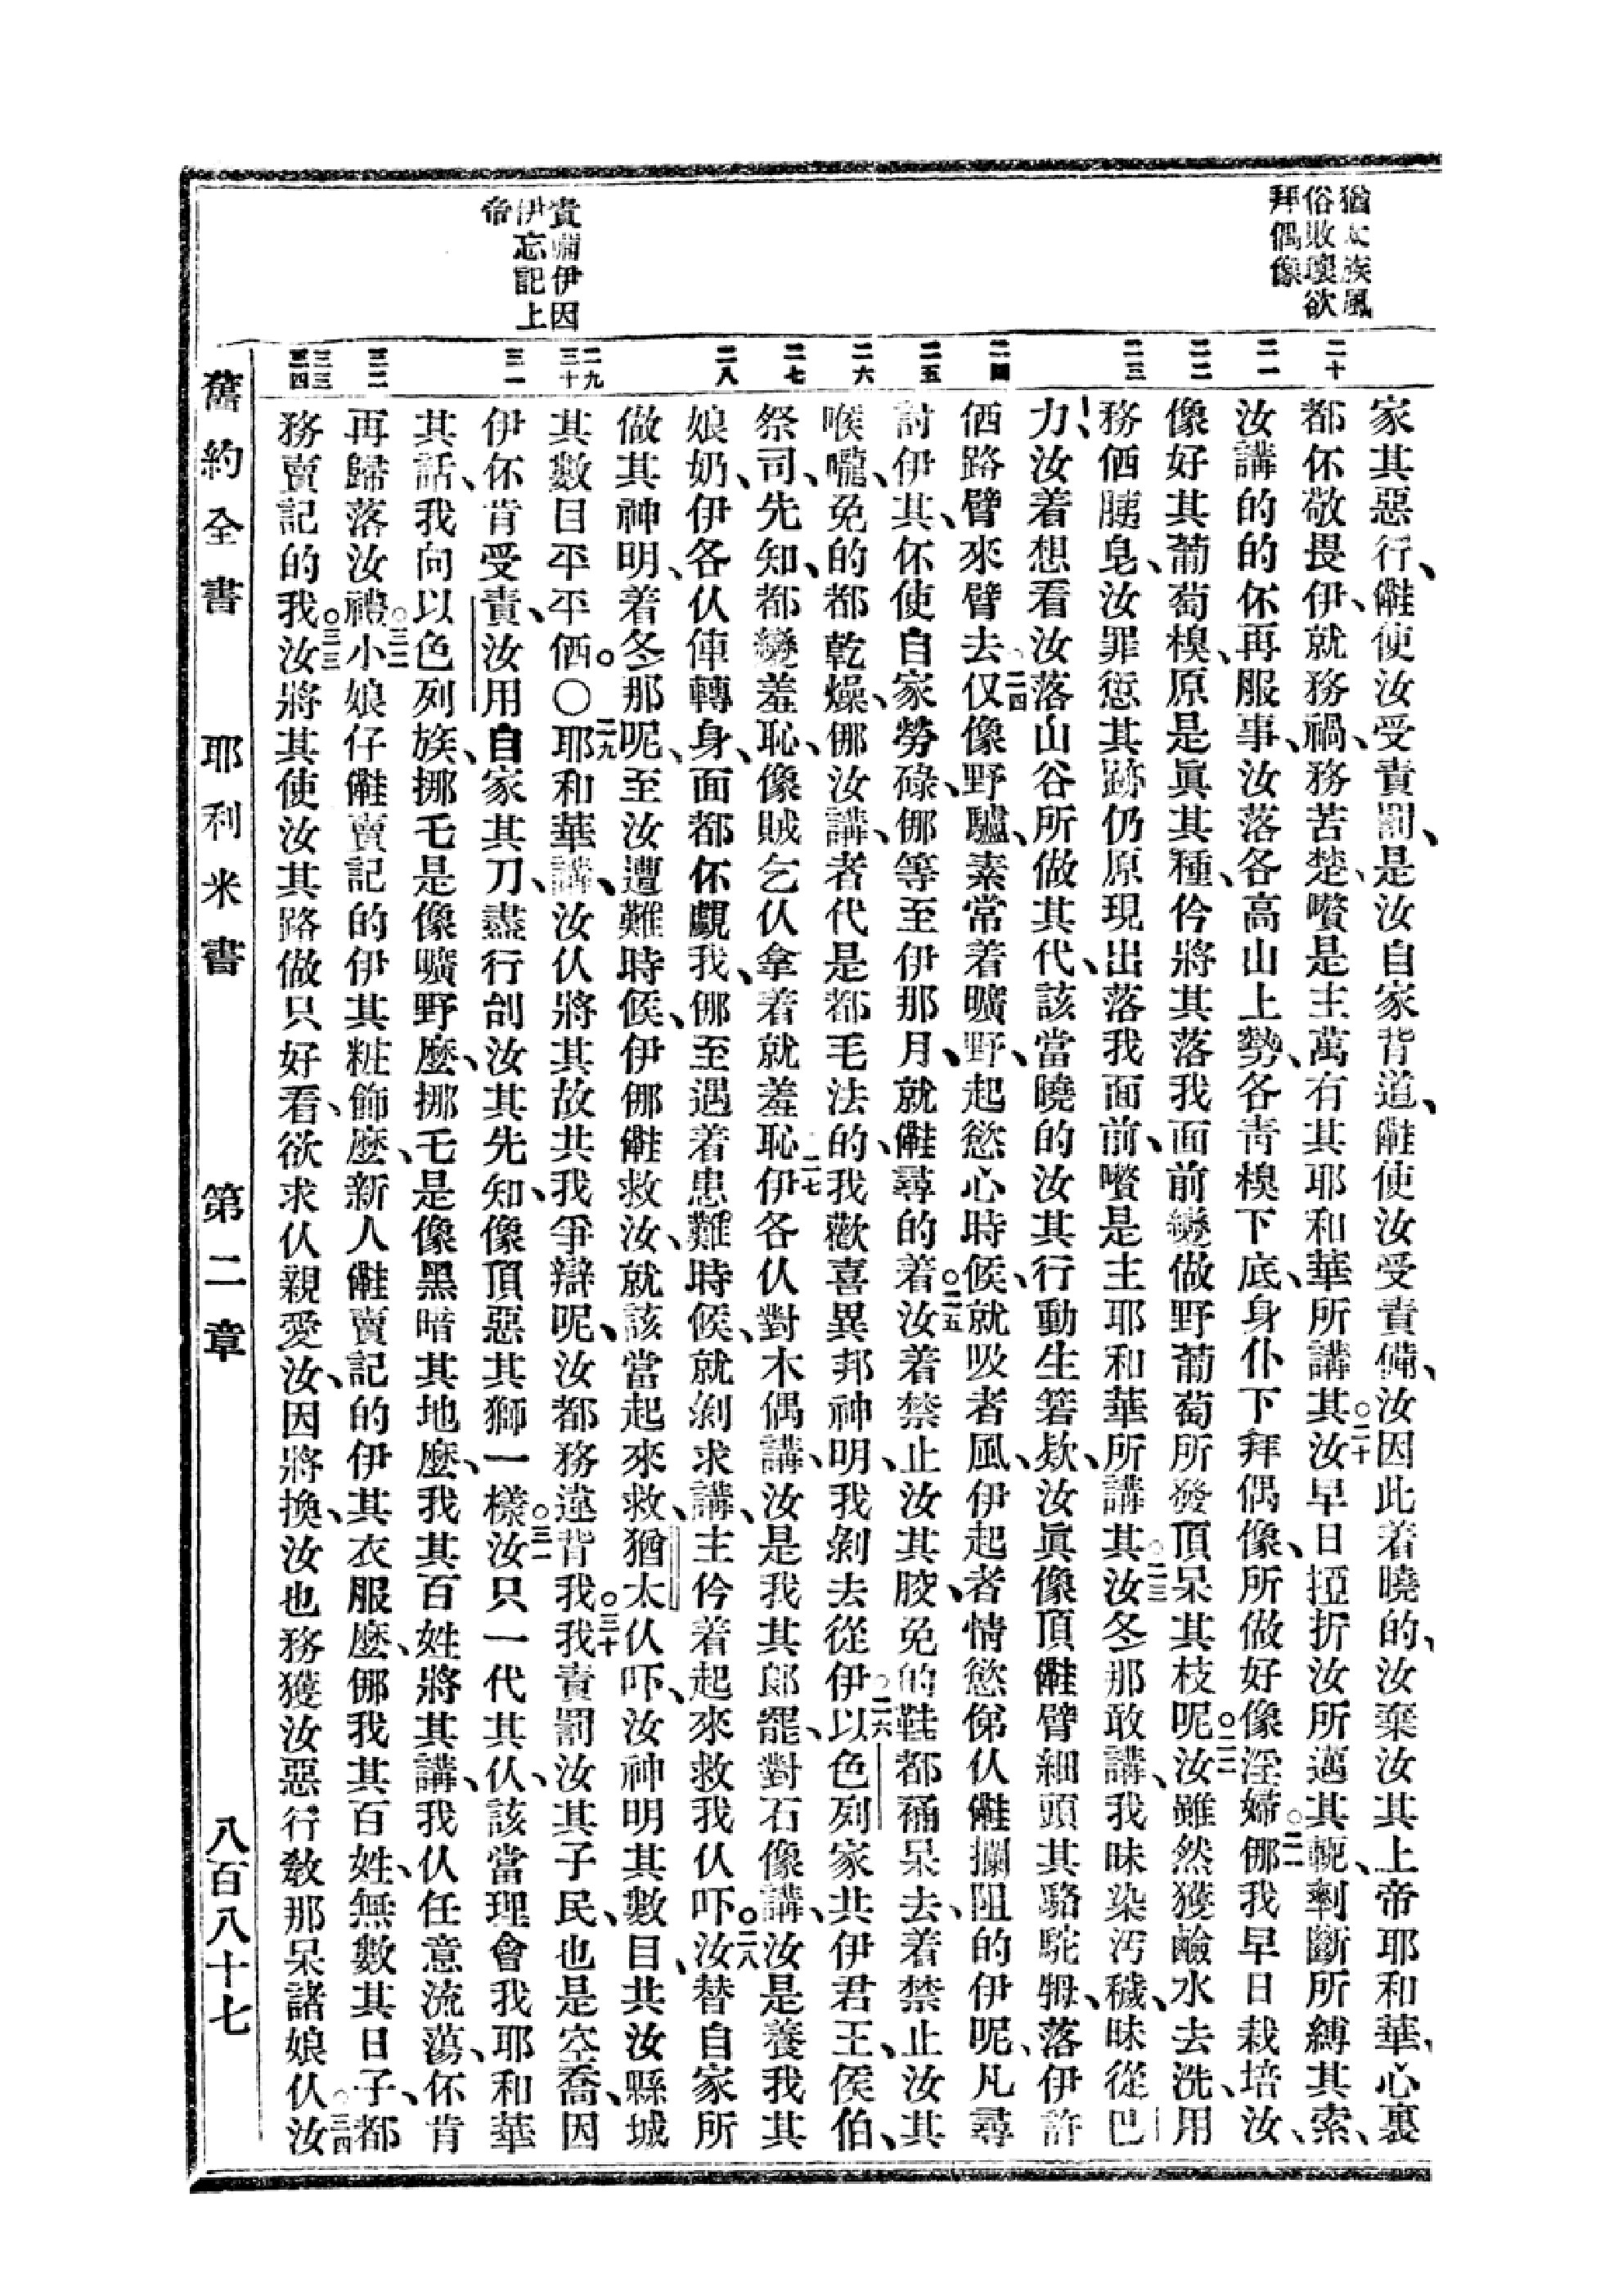 猶太族風
俗敗壞欲
拜偶像
責備伊因
伊忘記上
帝
二十
二一
二二
二三
二四
二五
二六
二七
二八
二九
三十
三一
三二
三三
三四
家其惡行、𣍐使汝受責罰、是汝自家背道、𣍐使汝受責備、汝因此着曉的、汝棄汝其上帝耶和華、心裏
都伓敬畏伊、就務禍、務苦楚、嚽是主萬有其耶和華所講其○二十汝早日掗折汝所邁其軛、剩斷所縛其索、
汝講的的伓再服事、汝落各高山上勢、各青模下底、身仆下拜偶像、所做好像淫婦○二一㑚我早日栽培汝、
像好其葡萄模、原是眞其種、仱將其落我面前變做野葡萄所發頂呆其枝呢○二二汝雖然獲鹼水去洗、用
務価胰皂、汝罪愆其跡仍原現出落我面前、嚽是主耶和華所講其○二三汝冬那敢講、我昧染汚穢、昧從巴
力、汝着想看汝落山谷所做其代、該當曉的汝其行動生箬欵、汝眞像頂𣍐臂細頭其駱駝𤙩、落伊許
価路臂來臂去○二四仅像野驢、素常着曠野、起慾心時候、就吸者風、伊起者情慾俤仈𣍐攔阻的伊呢、凡尋
討伊其、伓使自家勞碌、㑚等至伊那月、就𣍐尋的着○二五汝着禁止汝其骹、免的鞋都補呆去、着禁止汝其
喉嚨、免的都乾燥、㑚汝講、者代是都毛法的、我歡喜異邦神明、我剝去從伊○二六以色列家共伊君王、侯伯、
祭司、先知、都變羞恥、像賊乞仈拿着就羞恥○二七伊各仈對木偶講、汝是我其郎罷、對石像講、汝是養我其
娘奶、伊各仈俥轉身、面都伓覷我、㑚至遇着患難時候、就剝求講、主仱着起來救我仈吓○二八汝替自家所
做其神明、着冬那呢、至汝遭難時候、伊㑚𣍐救汝、就該當起來救、猶太仈吓、汝神明其數目、共汝縣城
其數目平平価。○二九耶和華講、汝仈將其故共我爭辯呢、汝都務違背我○三十我責罰汝其子民、也是空喬、因
伊伓肯受責、汝用自家其刀、盡行刣汝其先知、像頂惡其獅一樣○三一汝只一代其仈、該當理會我耶和華
其話、我向以色列族、挪乇是像曠野麽、挪乇是像黑暗其地麽、我其百姓將其講、我仈任意流蕩、伓肯
再歸落汝禮○三二小娘仔𣍐賣記的伊其粧飾麽、新人𣍐賣記的伊其衣服麽、㑚我其百姓、無數其日子、都
務賣記的我○三三汝將其使汝其路做只好看、欲求仈親愛汝、因將換、汝也務獲汝惡行敎那呆諸娘仈○三四汝
舊約全書　耶利米書　第二章　八百八十七